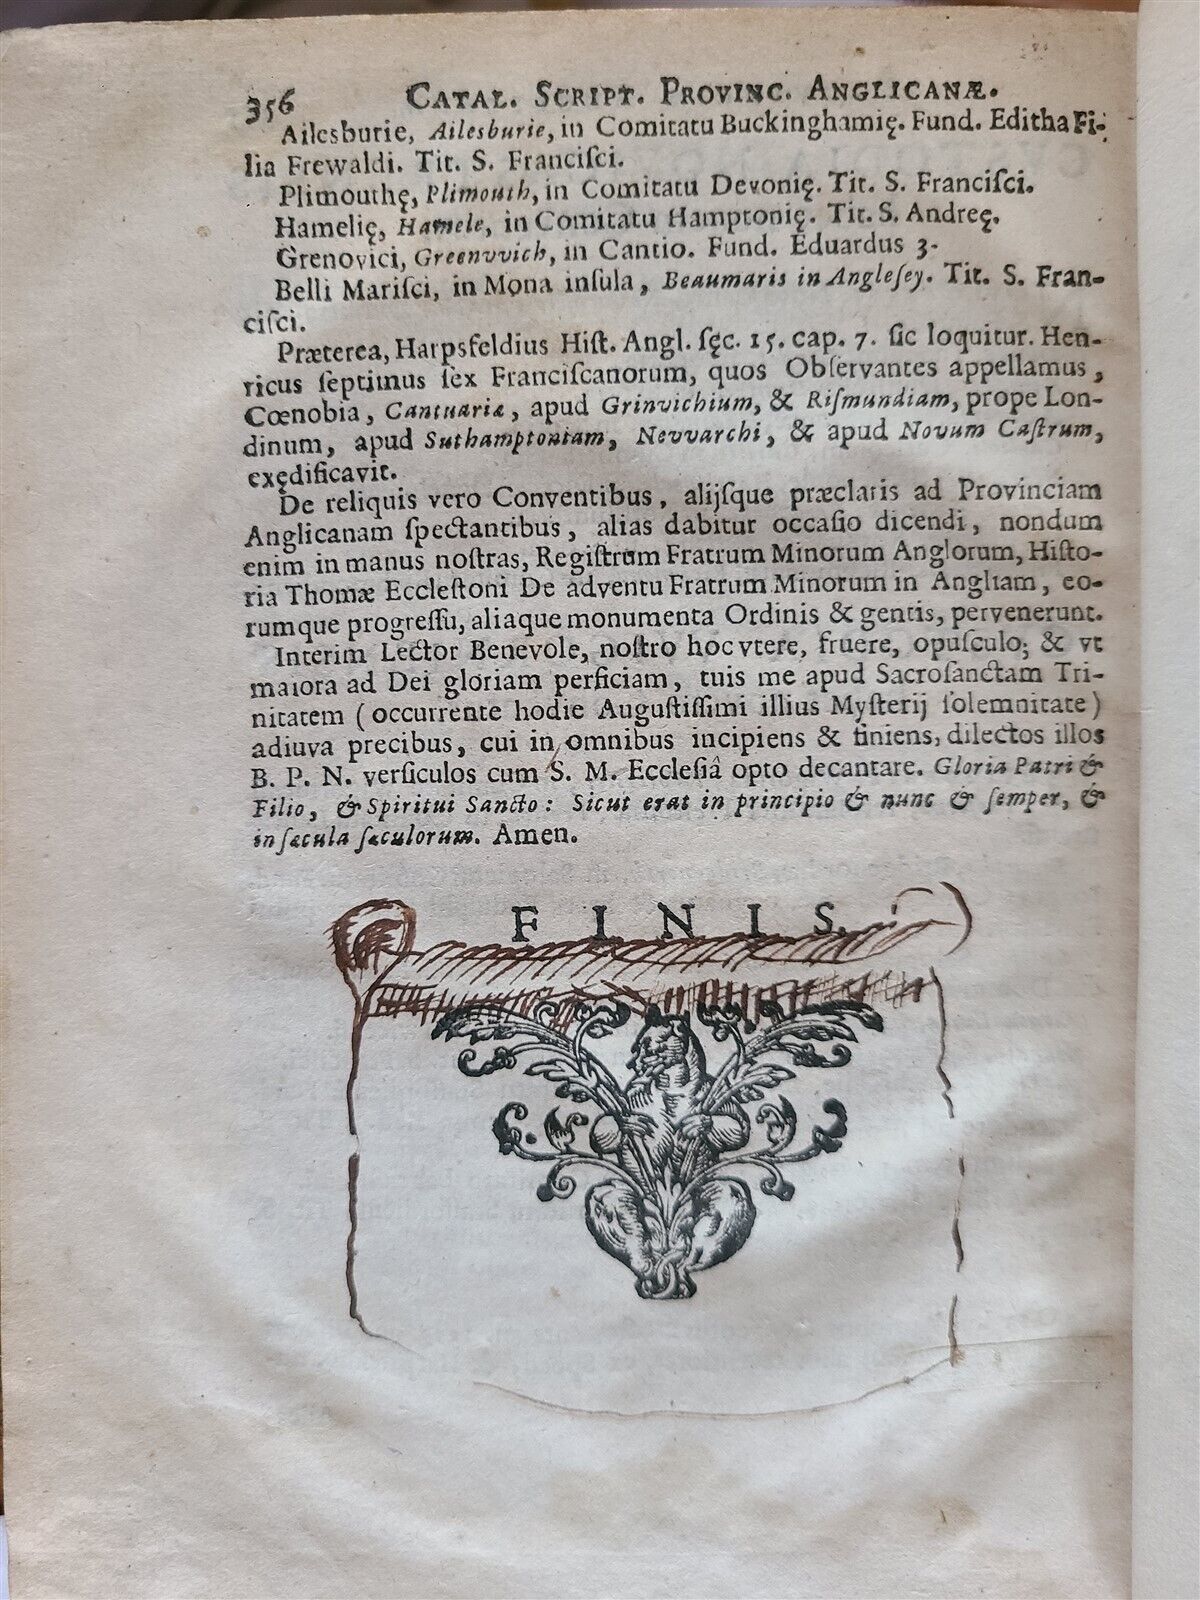 356 CATAL. SCRIPT. PROVINC. ANGLICANÆ.
Ailesburie, Ailesburie, in Comitatu Buckinghamię. Fund. Editha Fi-
lia Frewaldi. Tit. S. Franciſci.
Plimouthę, Plimouth, in Comitatu Devonię. Tit. S. Franciſci.
Hamelię, Hamele, in Comitatu Hamptonię. Tit. S. Andreę.
Grenovici, Greenvvich, in Cantio. Fund. Eduardus 3.
Belli Mariſci, in Mona inſula, Beaumaris in Angleſey. Tit. S. Fran-
ciſci.
Præterea, Harpsfeldius Hiſt. Angl. ſęc. 15. cap. 7. ſic loquitur. Hen-
ricus ſeptimus ſex Franciſcanorum, quos Obſervantes appellamus,
Cœnobia, Cantuariæ, apud Grinvichium, & Riſmundiam, prope Lon-
dinum, apud Suthamptoniam, Nevvarchi, & apud Novum Caſtrum,
exędificavit.
De reliquis vero Conventibus, alijſque præclaris ad Provinciam
Anglicanam ſpectantibus, alias dabitur occaſio dicendi, nondum
enim in manus noſtras, Regiſtrum Fratrum Minorum Anglorum, Hiſto-
ria Thomæ Eccleſtoni De adventu Fratrum Minorum in Angliam, eo-
rumque progreſſu, aliaque monumenta Ordinis & gentis, pervenerunt.
Interim Lector Benevole, noſtro hoc vtere, fruere, opuſculo; & vt
maiora ad Dei gloriam perficiam, tuis me apud Sacroſanctam Tri-
nitatem (occurrente hodie Auguſtiſſimi illius Myſterij ſolemnitate)
adiuva precibus, cui in omnibus incipiens & finiens, dilectos illos
B. P. N. verſiculos cum S. M. Eccleſiâ opto decantare. Gloria Patri &
Filio, & Spiritui Sancto: Sicut erat in principio & nunc & ſemper, &
in ſæcula ſæculorum. Amen.
FINIS.